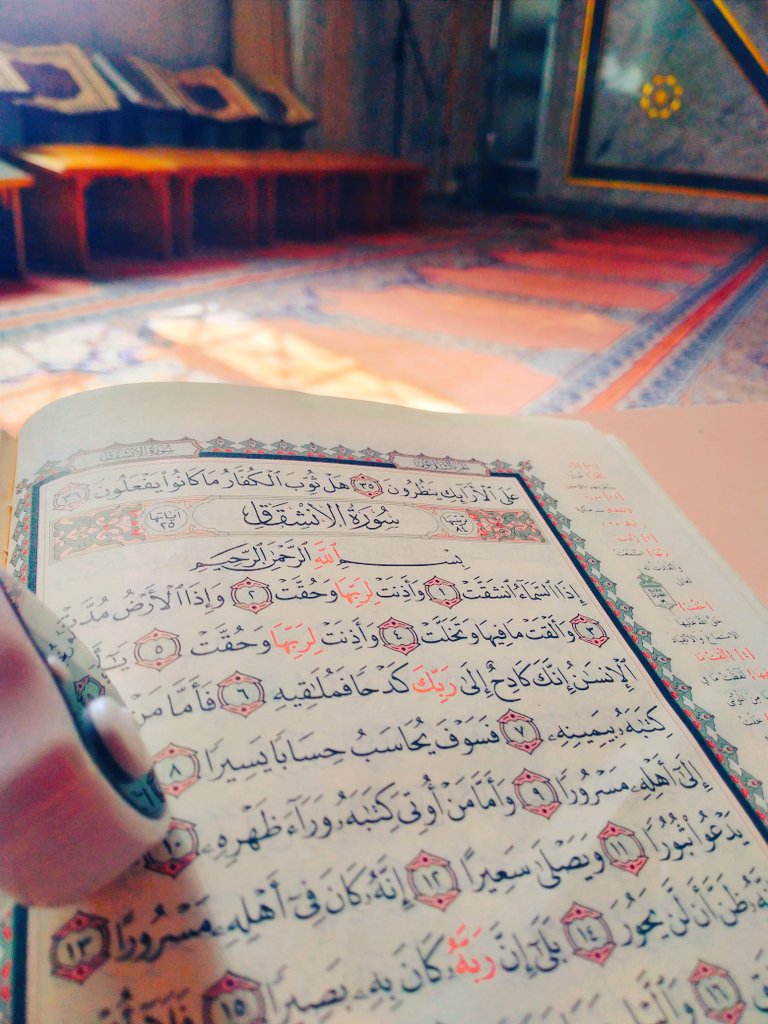 سُورَةُ الانشِقَاقِ
عَلَى الْأَرَائِكِ يَنظُرُونَ ٣٥ هَلْ ثُوِّبَ الْكُفَّارُ مَا كَانُوا يَفْعَلُونَ ٣٦
آيَاتُهَا ٢٥ سُورَةُ الانشِقَاقِ
بِسْمِ اللَّهِ الرَّحْمَٰنِ الرَّحِيمِ
إِذَا السَّمَاءُ انشَقَّتْ ١ وَأَذِنَتْ لِرَبِّهَا وَحُقَّتْ ٢ وَإِذَا الْأَرْضُ مُدَّتْ
٣ وَأَلْقَتْ مَا فِيهَا وَتَخَلَّتْ ٤ وَأَذِنَتْ لِرَبِّهَا وَحُقَّتْ ٥
الْإِنسَٰنُ إِنَّكَ كَادِحٌ إِلَىٰ رَبِّكَ كَدْحًا فَمُلَٰقِيهِ ٦ فَأَمَّا مَنْ
كِتَٰبَهُ بِيَمِينِهِ ٧ فَسَوْفَ يُحَاسَبُ حِسَابًا يَسِيرًا ٨
إِلَىٰ أَهْلِهِ مَسْرُورًا ٩ وَأَمَّا مَنْ أُوتِيَ كِتَٰبَهُ وَرَاءَ ظَهْرِهِ ١٠
يَدْعُوا ثُبُورًا ١١ وَيَصْلَىٰ سَعِيرًا ١٢ إِنَّهُ كَانَ فِي أَهْلِهِ مَسْرُورًا ١٣
ظَنَّ أَن لَّن يَحُورَ ١٤ بَلَىٰ إِنَّ رَبَّهُ كَانَ بِهِ بَصِيرًا ١٥
١٦